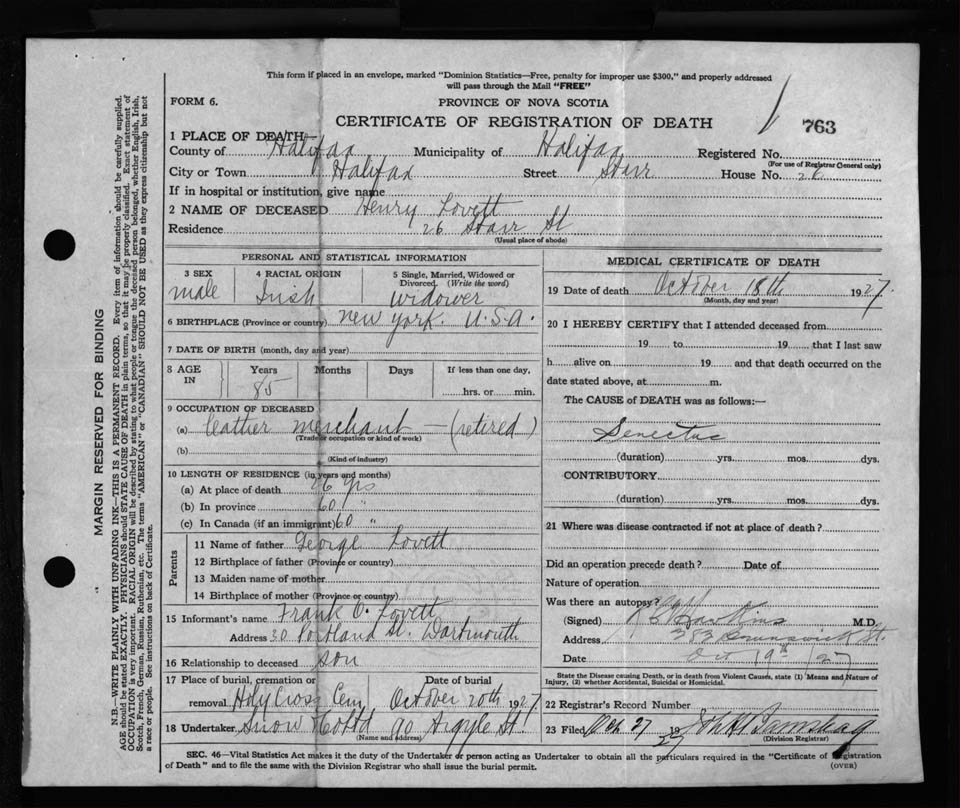 This form if placed in an envelope, marked "Dominion Statistics—Free, penalty for improper use $300," and properly addressed
will pass through the Mail "FREE"
FORM 6.
PROVINCE OF NOVA SCOTIA
CERTIFICATE OF REGISTRATION OF DEATH
763
1 PLACE OF DEATH—
County of Halifax Municipality of Halifax Registered No.
(For use of Registrar General only)
City or Town Halifax Street Starr House No. 26
If in hospital or institution, give name
2 NAME OF DECEASED Henry Lovett
Residence 26 Starr St
(Usual place of abode)
PERSONAL AND STATISTICAL INFORMATION
3 SEX 4 RACIAL ORIGIN 5 Single, Married, Widowed or Divorced (Write the word)
male Irish widower
6 BIRTHPLACE (Province or country) New York. U.S.A.
7 DATE OF BIRTH (month, day and year)
8 AGE IN Years Months Days If less than one day,
85 hrs. or min.
9 OCCUPATION OF DECEASED
(a) leather merchant — (retired)
(Trade or occupation or kind of work)
(b)
(Kind of industry)
10 LENGTH OF RESIDENCE (in years and months)
(a) At place of death 6 yrs
(b) In province 60 "
(c) In Canada (if an immigrant) 60 "
Parents
11 Name of father George Lovett
12 Birthplace of father (Province or country)
13 Maiden name of mother
14 Birthplace of mother (Province or country)
15 Informant's name Frank O. Lovett
Address 30 Portland St. Dartmouth
16 Relationship to deceased son
17 Place of burial, cremation or removal Date of burial
Holy Cross Cem October 20th 1927
18 Undertaker Snow & Co Ltd 90 Argyle St.
(Name and address)
MEDICAL CERTIFICATE OF DEATH
19 Date of death October 18th 1927
(Month, day and year)
20 I HEREBY CERTIFY that I attended deceased from
19 to 19 that I last saw
h alive on 19 and that death occurred on the
date stated above, at m.
The CAUSE of DEATH was as follows:—
Senectus
(duration) yrs. mos. dys.
CONTRIBUTORY
(duration) yrs. mos. dys.
21 Where was disease contracted if not at place of death?
Did an operation precede death? Date of
Nature of operation
Was there an autopsy?
(Signed) Hawkins M.D.
Address 382 Brunswick St.
Date Oct 19th 1927
State the Disease causing Death, or in death from Violent Causes, state (1) Means and Nature of
Injury, (2) whether Accidental, Suicidal or Homicidal.
22 Registrar's Record Number
23 Filed Oct 27 1927
(Division Registrar)
SEC. 46—Vital Statistics Act makes it the duty of the Undertaker or person acting as Undertaker to obtain all the particulars required in the "Certificate of Registration
of Death" and to file the same with the Division Registrar who shall issue the burial permit.
(OVER)
MARGIN RESERVED FOR BINDING
N.B.—WRITE PLAINLY WITH UNFADING INK—THIS IS A PERMANENT RECORD. Every item of information should be carefully supplied.
AGE should be stated EXACTLY. PHYSICIANS should STATE CAUSE OF DEATH in plain terms, so that it may be properly classified. Exact statement of
OCCUPATION is very important. RACIAL ORIGIN will be described by stating to what people or tongue the deceased person belonged, whether English, Irish,
Scotch, French, German, Russian, Ruthenian, etc. The terms "AMERICAN" or "CANADIAN" SHOULD NOT BE USED as they express citizenship but not
a race or people. See instructions on back of Certificate.